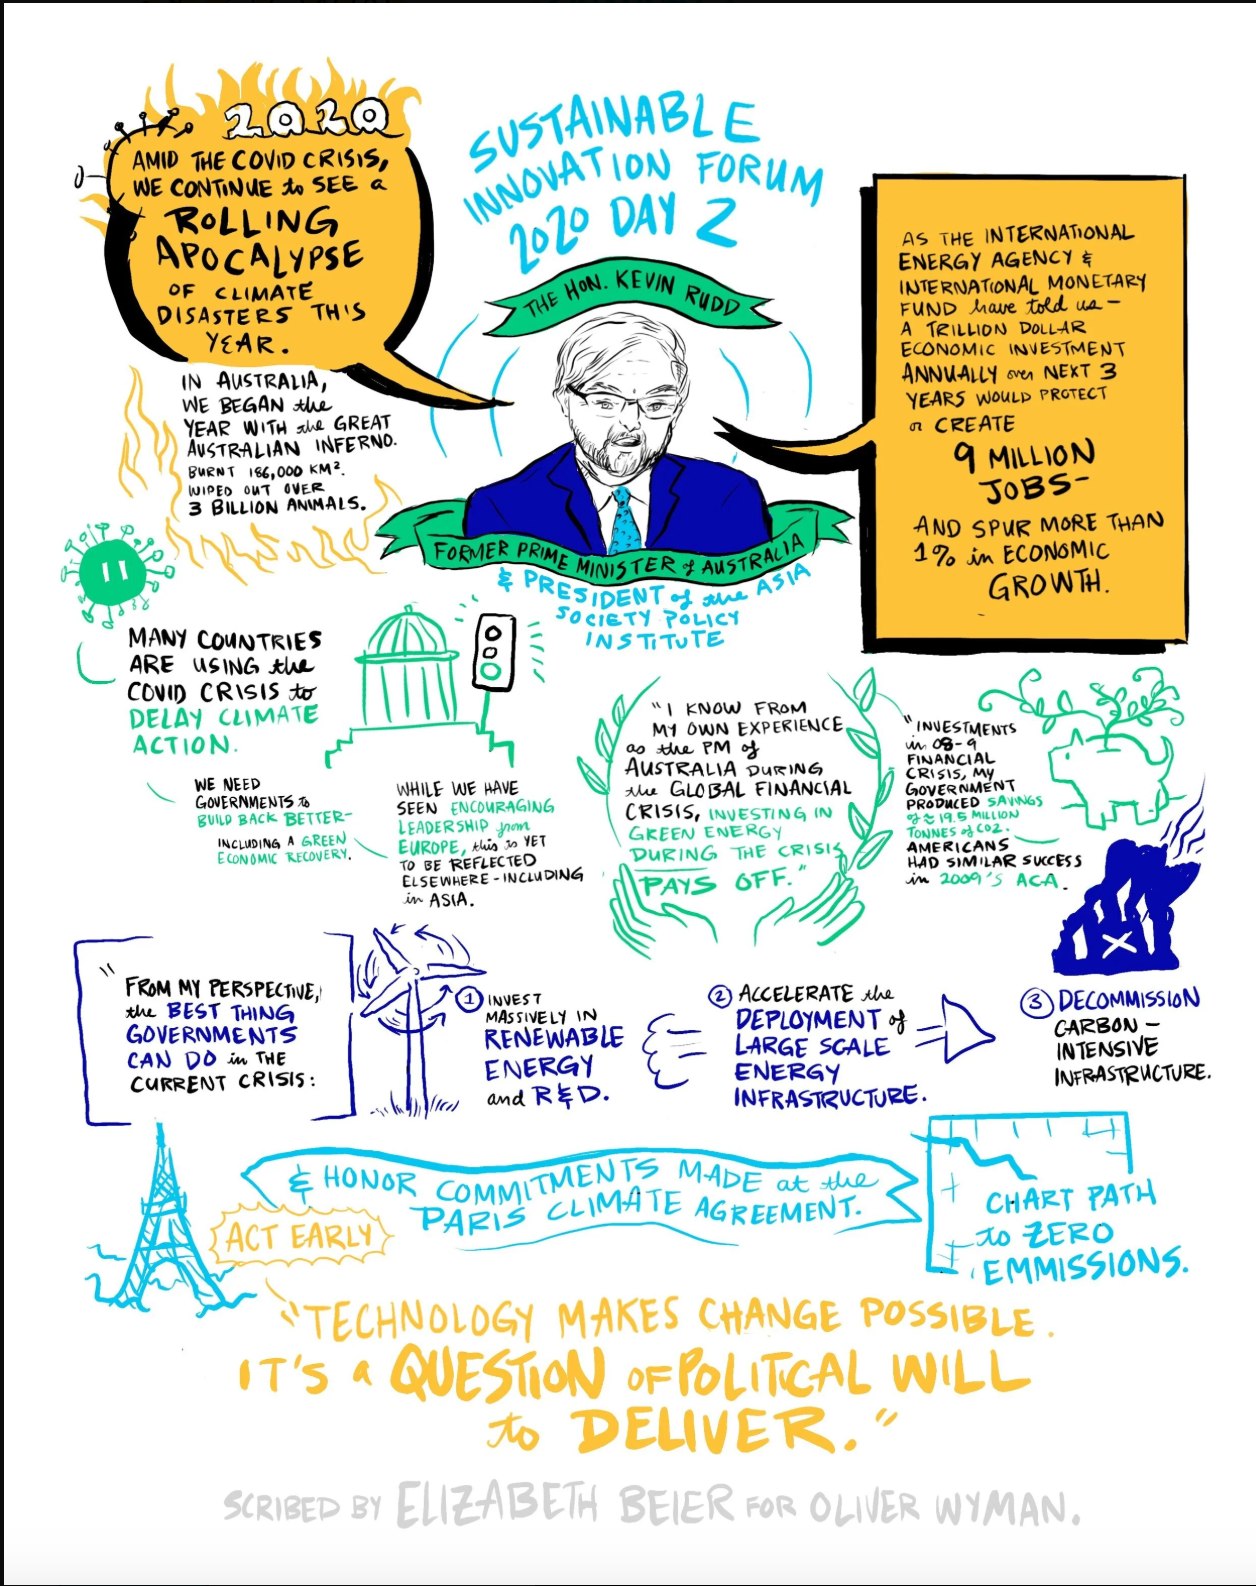 2020
AMID THE COVID CRISIS,
WE CONTINUE to SEE a
ROLLING
APOCALYPSE
OF CLIMATE
DISASTERS THIS
YEAR.
IN AUSTRALIA,
WE BEGAN the
YEAR WITH the GREAT
AUSTRALIAN INFERNO.
BURNT 186,000 KM².
WIPED OUT OVER
3 BILLION ANIMALS.
SUSTAINABLE
INNOVATION FORUM
2020 DAY 2
THE HON. KEVIN RUDD
FORMER PRIME MINISTER of AUSTRALIA
& PRESIDENT of the ASIA
SOCIETY POLICY
INSTITUTE
AS THE INTERNATIONAL
ENERGY AGENCY &
INTERNATIONAL MONETARY
FUND have told us —
A TRILLION DOLLAR
ECONOMIC INVESTMENT
ANNUALLY over NEXT 3
YEARS WOULD PROTECT
or CREATE
9 MILLION
JOBS-
AND SPUR MORE THAN
1% in ECONOMIC
GROWTH.
MANY COUNTRIES
ARE USING the
COVID CRISIS to
DELAY CLIMATE
ACTION.
WE NEED
GOVERNMENTS to
BUILD BACK BETTER-
INCLUDING A GREEN
ECONOMIC RECOVERY.
WHILE WE HAVE
SEEN ENCOURAGING
LEADERSHIP from
EUROPE, this is YET
TO BE REFLECTED
ELSEWHERE - INCLUDING
in ASIA.
"I KNOW FROM
MY OWN EXPERIENCE
as the PM of
AUSTRALIA DURING
the GLOBAL FINANCIAL
CRISIS, INVESTING IN
GREEN ENERGY
DURING THE CRISIS
PAYS OFF."
"INVESTMENTS
in 08-9
FINANCIAL
CRISIS, MY
GOVERNMENT
PRODUCED SAVINGS
of ≈ 19.5 MILLION
TONNES of CO2.
AMERICANS
HAD SIMILAR SUCCESS
in 2009'S ACA.
"FROM MY PERSPECTIVE,
the BEST THING
GOVERNMENTS
CAN DO in THE
CURRENT CRISIS:
1 INVEST
MASSIVELY IN
RENEWABLE
ENERGY
and R&D.
2 ACCELERATE the
DEPLOYMENT of
LARGE SCALE
ENERGY
INFRASTRUCTURE.
3 DECOMMISSION
CARBON -
INTENSIVE
INFRASTRUCTURE.
& HONOR COMMITMENTS MADE at the
PARIS CLIMATE AGREEMENT.
ACT EARLY
CHART PATH
to ZERO
EMMISSIONS.
"TECHNOLOGY MAKES CHANGE POSSIBLE.
IT'S a QUESTION OF POLITICAL WILL
to DELIVER."
SCRIBED BY ELIZABETH BEIER FOR OLIVER WYMAN.